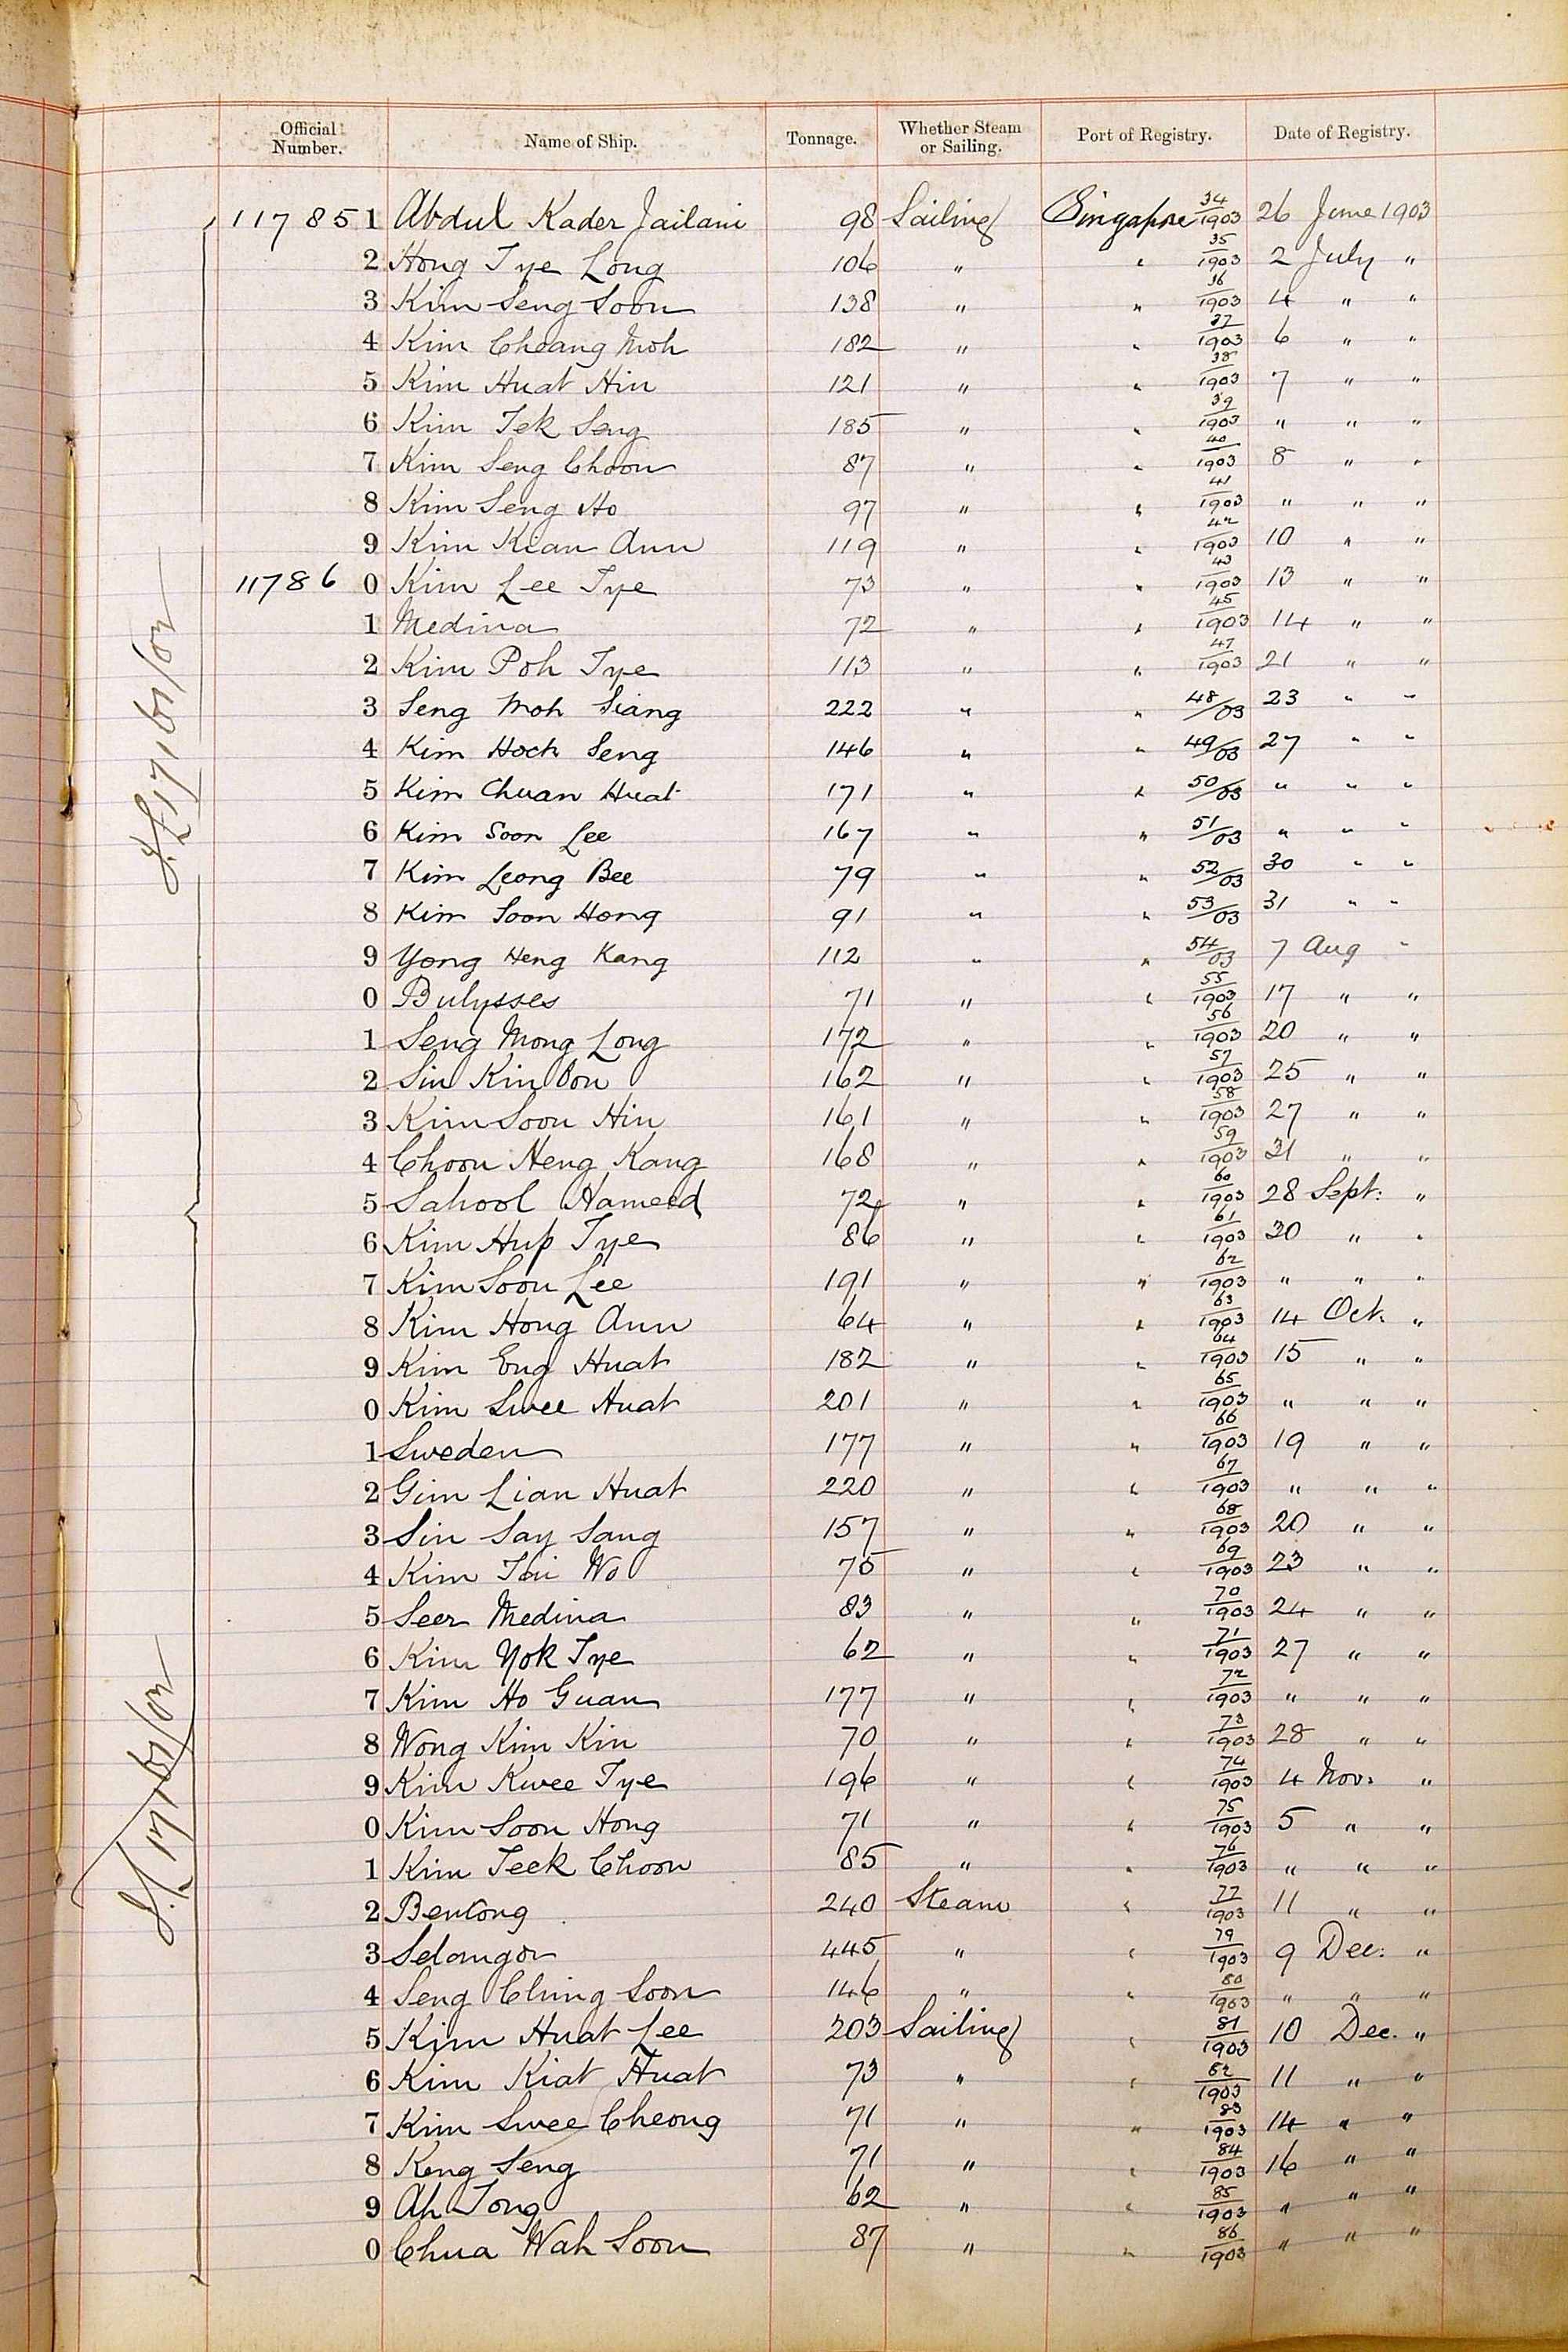 Official Number. Name of Ship. Tonnage. Whether Steam or Sailing. Port of Registry. Date of Registry.
117851 Abdul Kader Jailani 98 Sailing Singapore 34/1903 26 June 1903
2 Hong Tye Long 106 " " 35/1903 2 July "
3 Kim Seng Soon 138 " " 36/1903 4 " "
4 Kim Cheang Moh 182 " " 37/1903 6 " "
5 Kim Huat Hin 121 " " 38/1903 7 " "
6 Kim Tek Seng 185 " " 39/1903 " " "
7 Kim Seng Choon 87 " " 40/1903 8 " "
8 Kim Seng Ho 97 " " 41/1903 " " "
9 Kim Kian Ann 119 " " 42/1903 10 " "
117860 Kim Lee Tye 73 " " 43/1903 13 " "
1 Medina 72 " " 45/1903 14 " "
2 Kim Poh Tye 113 " " 47/1903 21 " "
3 Seng Moh Siang 222 " " 48/03 23 " "
4 Kim Hock Seng 146 " " 49/03 27 " "
5 Kim Chuan Huat 171 " " 50/03 " " "
6 Kim Soon Lee 167 " " 51/03 " " "
7 Kim Leong Bee 79 " " 52/03 30 " "
8 Kim Soon Hong 91 " " 53/03 31 " "
9 Yong Heng Kang 112 " " 54/03 7 Aug "
0 Bulysses 71 " " 55/1903 17 " "
1 Seng Mong Long 172 " " 56/1903 20 " "
2 Sin Kim Bon 162 " " 57/1903 25 " "
3 Kim Soon Hin 161 " " 58/1903 27 " "
4 Choon Heng Kang 168 " " 59/1903 31 " "
5 Sahool Hameed 72 " " 60/1903 28 Sept: "
6 Kim Hup Tye 86 " " 61/1903 30 " "
7 Kim Soon Lee 191 " " 62/1903 " " "
8 Kim Hong Ann 64 " " 63/1903 14 Oct. "
9 Kim Eng Huat 182 " " 64/1903 15 " "
0 Kim Swee Huat 201 " " 65/1903 " " "
1 Sweden 177 " " 66/1903 19 " "
2 Gim Lian Huat 220 " " 67/1903 " " "
3 Sin Say Sang 157 " " 68/1903 20 " "
4 Kim Tai Wo 75 " " 69/1903 23 " "
5 Seer Medina 83 " " 70/1903 24 " "
6 Kim Yok Tye 62 " " 71/1903 27 " "
7 Kim Ho Guan 177 " " 72/1903 " " "
8 Wong Kim Kin 70 " " 73/1903 28 " "
9 Kim Kwee Tye 196 " " 74/1903 4 Nov: "
0 Kim Soon Hong 71 " " 75/1903 5 " "
1 Kim Teek Choon 85 " " 76/1903 " " "
2 Bentong 240 Steam " 77/1903 11 " "
3 Selangor 445 " " 79/1903 9 Dec: "
4 Seng Ching Soon 146 " " 80/1903 " " "
5 Kim Huat Lee 203 Sailing " 81/1903 10 Dec. "
6 Kim Kiat Huat 73 " " 82/1903 11 " "
7 Kim Swee Cheong 71 " " 83/1903 14 " "
8 Keng Seng 71 " " 84/1903 16 " "
9 Ah Tong 62 " " 85/1903 " " "
0 Chua Wah Soon 87 " " 86/1903 " " "